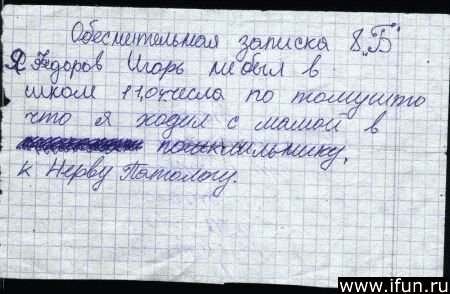 Обеснительная записка 8 "Б"
Я Федоров Игорь не был в
школ 11,04 числа по томушто
что я ходил с мамой в
к Нерву Патологу.
www.ifun.ru